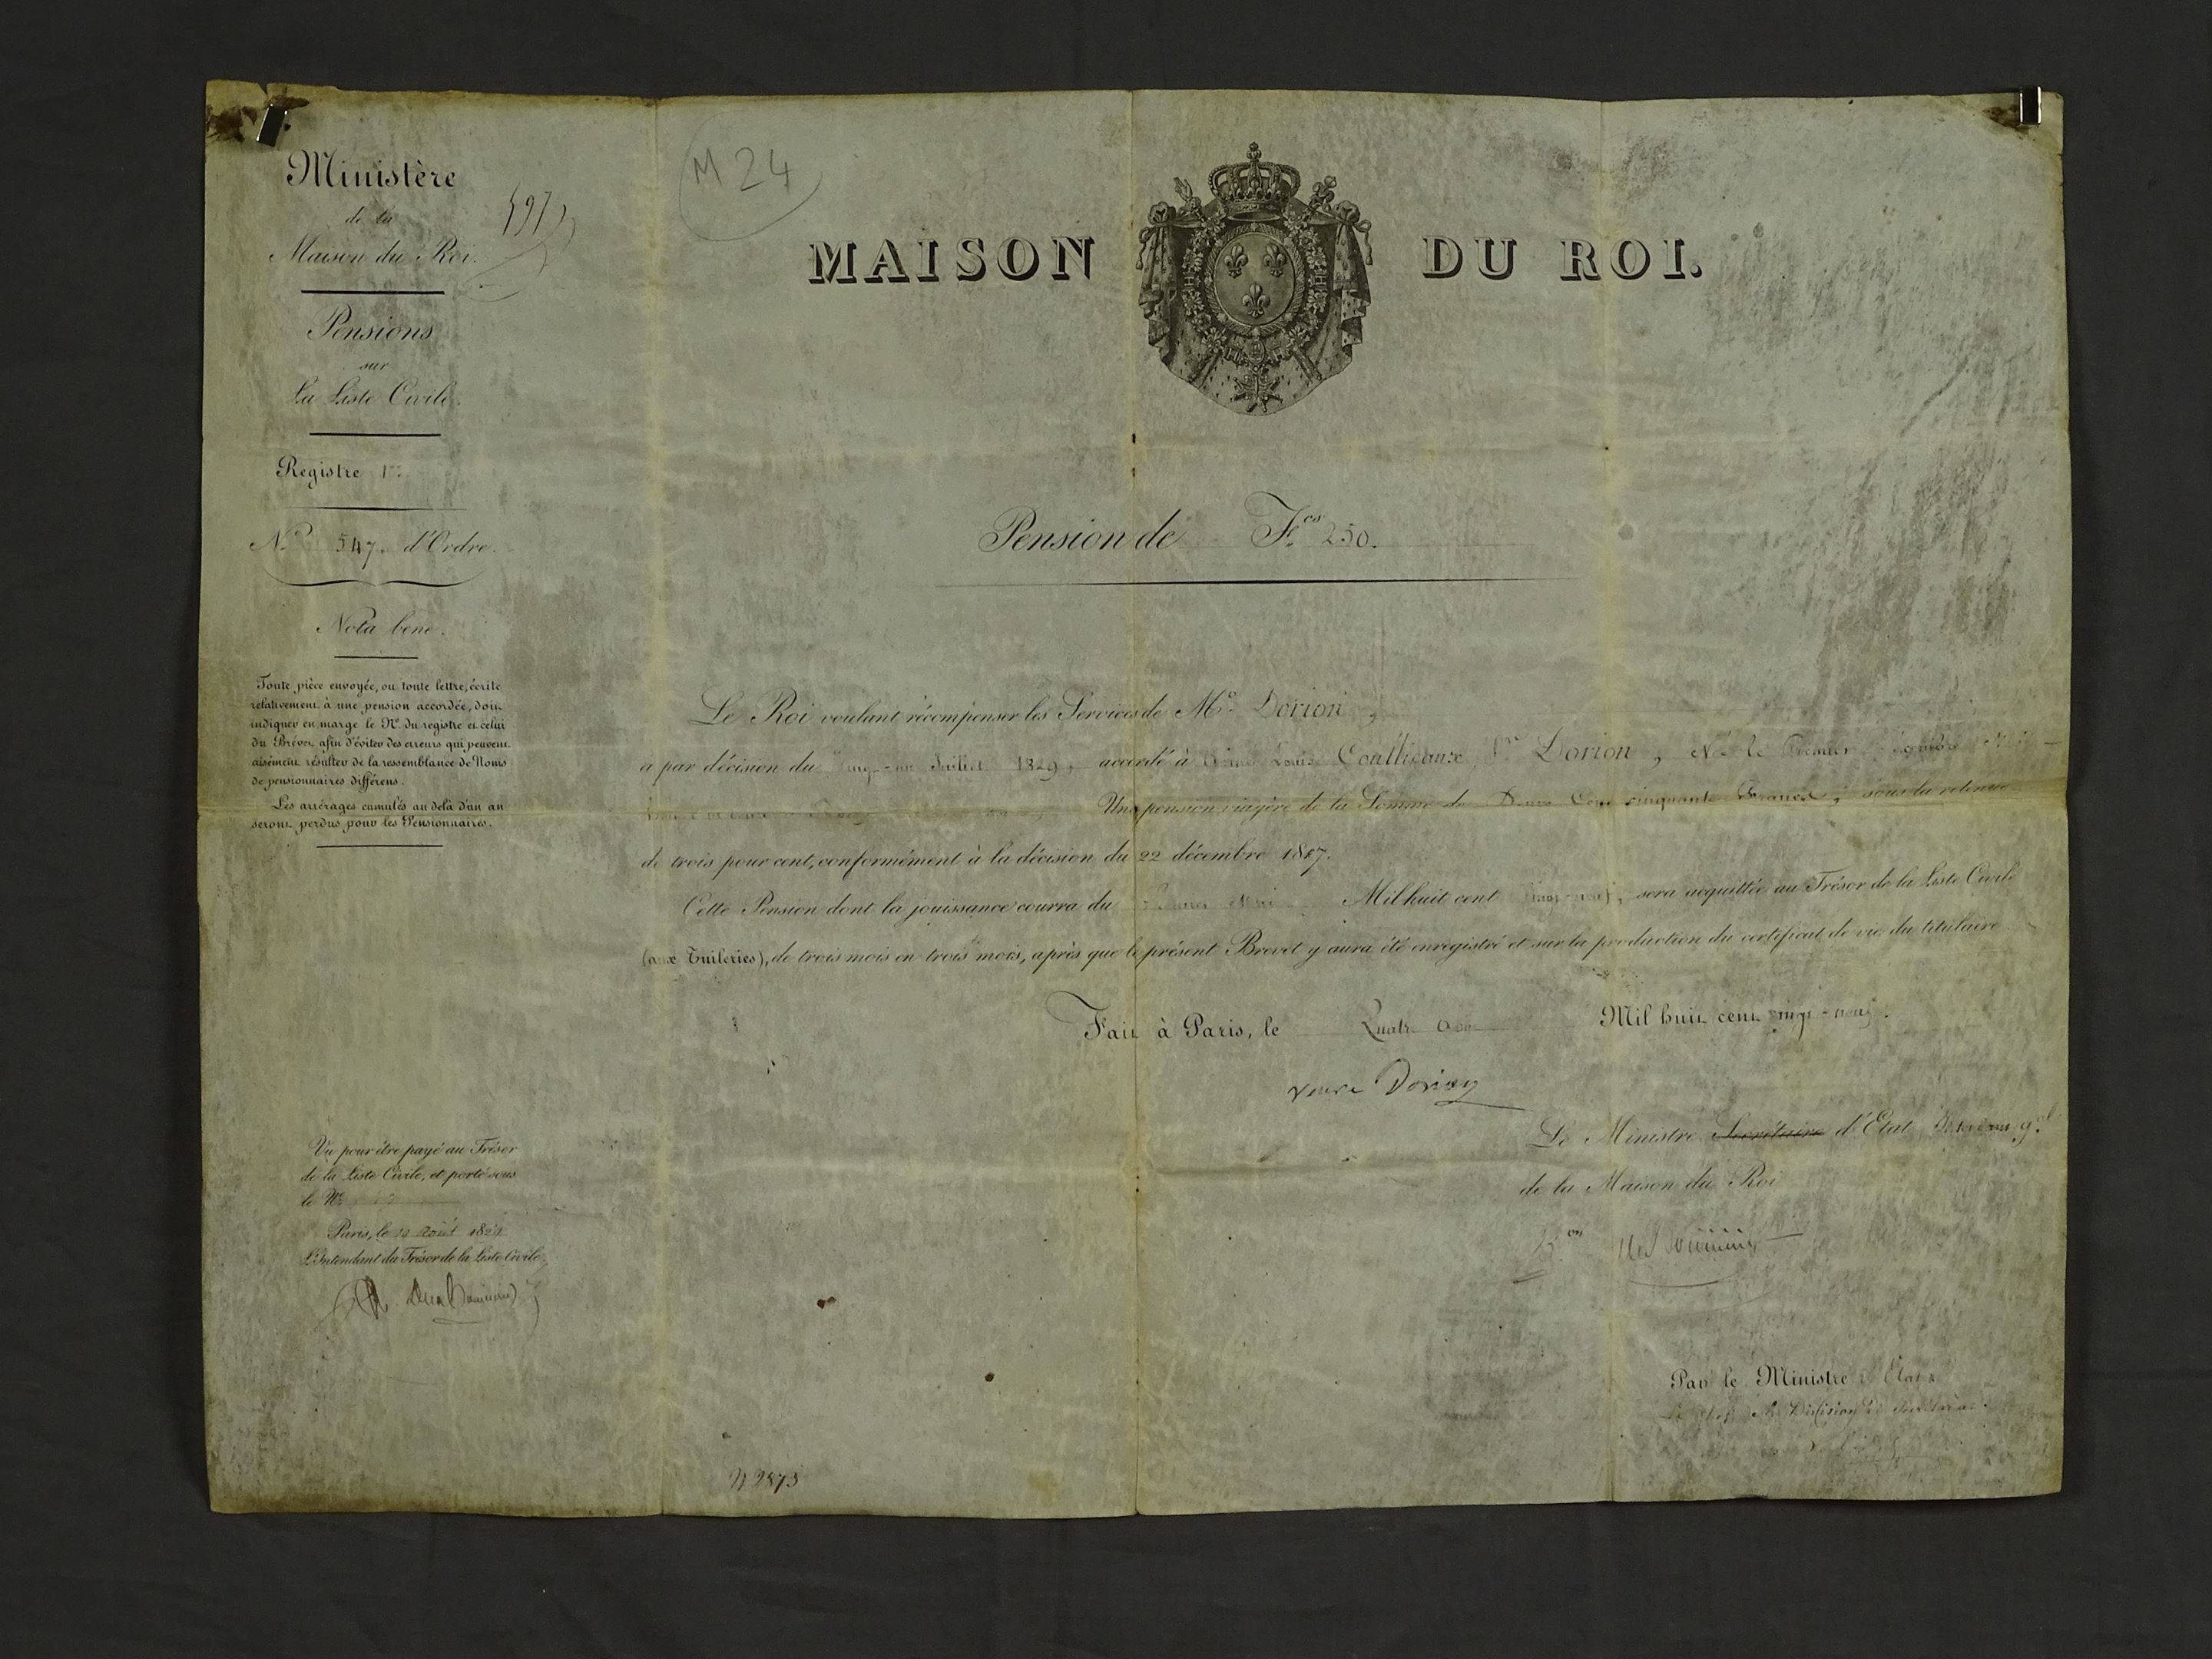 Ministère
de la
Maison du Roi.
Pensions
sur
La Liste Civile.
Registre 1er
N.º 547. d'Ordre.
Nota bene.
Toute pièce envoyée, ou toute lettre, écrite
relativement à une pension accordée, doit
indiquer en marge le Nº du registre et celui
du Brevet afin d'éviter des erreurs qui peuvent
aisément résulter de la ressemblance de Noms
de pensionnaires différens.
Les arrérages cumulés au delà d'un an
seront perdus pour les Pensionnaires.
Vu pour être payé au Trésor
de la Liste Civile, et porté sous
le Nº
Paris, le août 1829
L'Intendant du Trésor de la Liste Civile.
M 24
MAISON DU ROI.
Pension de F.cs 250.
Le Roi voulant récompenser les Services de M.º Dorion,
a par décision du Juillet 1829, accordé à Louise Dorion, Née le Premier
Une pension viagère de la Somme de Deux Cent cinquante Francs, sous la retenue
de trois pour cent, conformément à la décision du 22 décembre 1817.
Cette Pension dont la jouissance courra du Mil huit cent vingt-neuf, sera acquittée au Trésor de la Liste Civile
(aux Tuileries), de trois mois en trois mois, après que le présent Brevet y aura été enregistré et sur la production du certificat de vie du titulaire
Fait à Paris, le Quatre Août Mil huit cent vingt-neuf.
veuve Dorion
Le Ministre Secrétaire d'Etat Intendant g.al
de la Maison du Roi
Par le Ministre d'Etat
2873